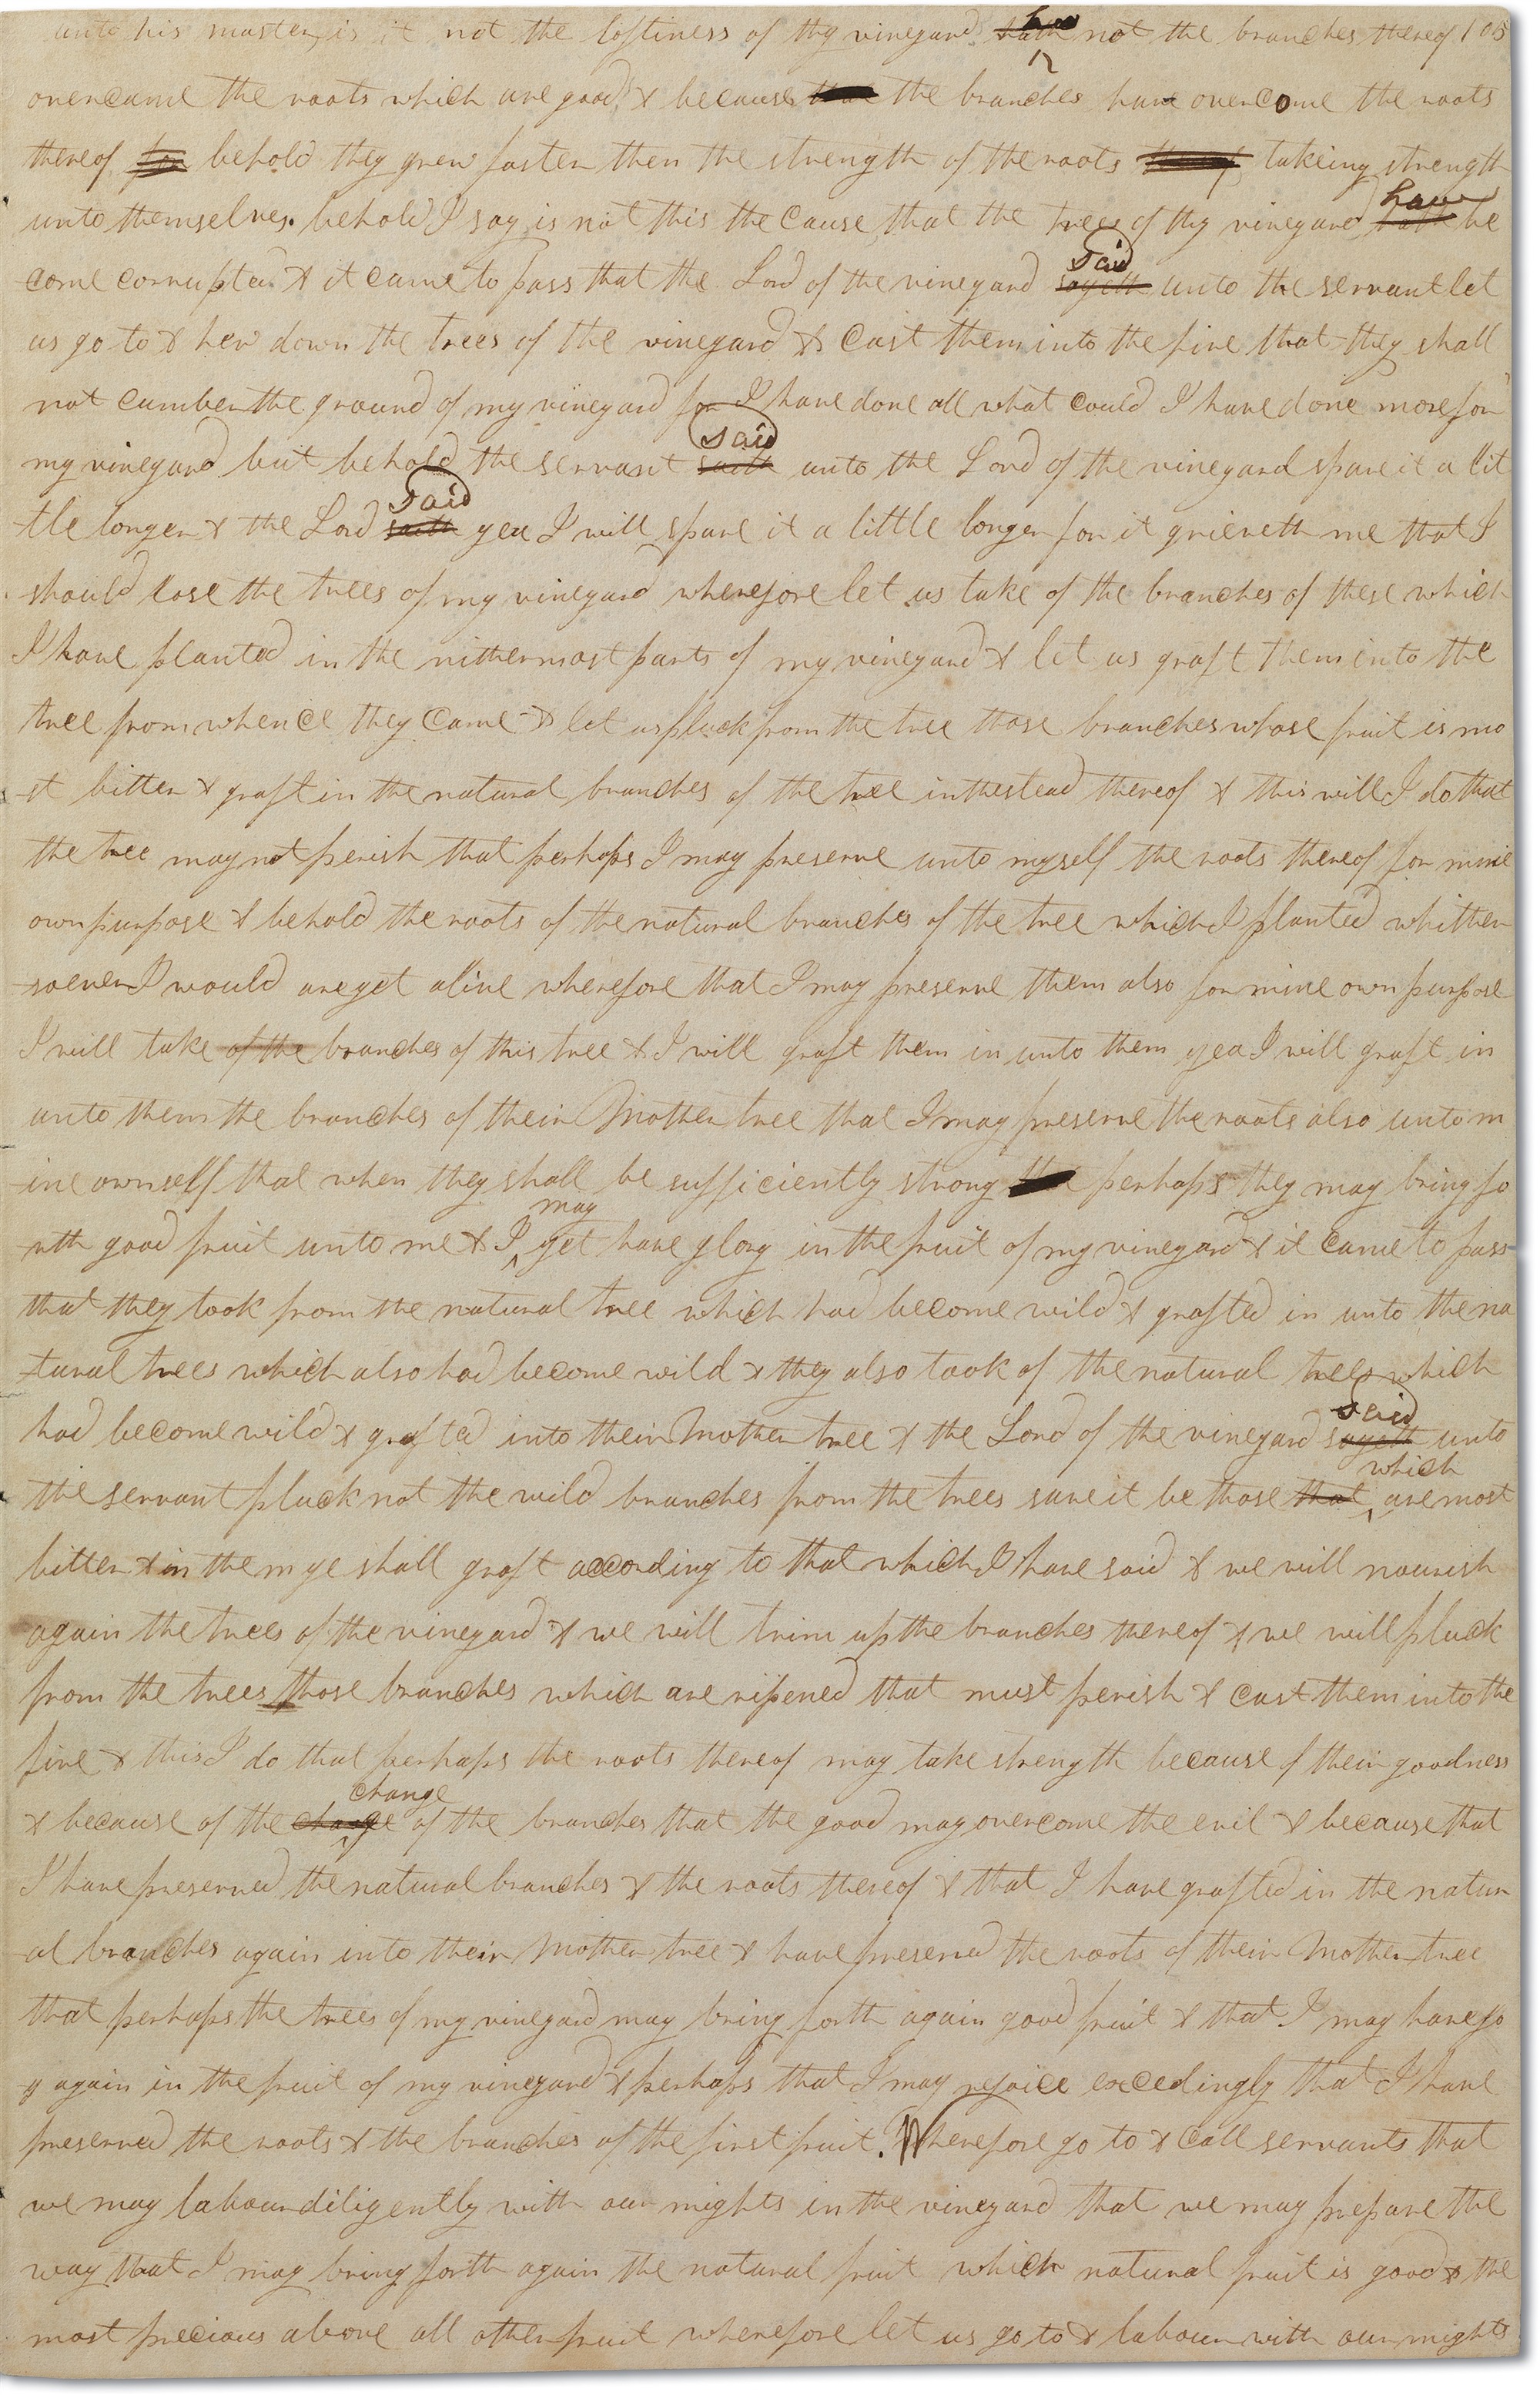 unto his master, is it not the loftiness of thy vineyard hath have not the branches thereof 105
overcame the roots which are good, & because that the branches have overcome the roots
thereof for behold they grew faster then the strength of the roots thereof takeing strength
unto themselves. behold I say is not this the cause that the trees of thy vineyard hath have be
come corrupted. & it came to pass that the Lord of the vineyard sayeth said unto the servant let
us go to & hew down the trees of the vineyard & cast them into the fire that they shall
not cumber the ground of my vineyard for I have done all what could I have done more for
my vineyard but behold the servant saith said unto the Lord of the vineyard spare it a lit
tle longer & the Lord saith said yea I will spare it a little longer for it grieveth me that I
should lose the trees of my vineyard wherefore let us take of the branches of these which
I have planted in the nithermost parts of my vineyard & let us graft them into the
tree from whence they came & let us pluck from the tree those branches whose fruit is mo
st bitter & graft in the natural branches of the tree in the stead thereof & this will I do that
the tree may not perish that perhaps I may preserve unto myself the roots thereof for mine
own purpose & behold the roots of the natural branches of the tree which I planted whither
soever I would are yet alive wherefore that I may preserve them also for mine own purpose
I will take of the branches of this tree & I will graft them in unto them yea I will graft in
unto them the branches of their Mother tree that I may preserve the roots also unto m
ine own self that when they shall be sufficiently strong the perhaps they may bring fo
rth good fruit unto me & I may yet have glory in the fruit of my vineyard & it came to pass
that they took from the natural tree which had become wild & grafted in unto the na
tural trees which also had become wild & they also took of the natural trees which
had become wild & grafted into their Mother tree & the Lord of the vineyard sayeth said unto
the servant pluck not the wild branches from the trees save it be those that which are most
bitter & in them ye shall graft according to that which I have said & we will nourish
again the trees of the vineyard & we will trim up the branches thereof & we will pluck
from the trees those branches which are ripened that must perish & cast them into the
fire & this I do that perhaps the roots thereof may take strength because of their goodness
& because of the change change of the branches that the good may overcome the evil & because that
I have preserved the natural branches & the roots thereof & that I have grafted in the natur
al branches again into their Mother tree & have preserved the roots of their Mother tree
that perhaps the trees of my vineyard may bring forth again good fruit & that I may have jo
y again in the fruit of my vineyard & perhaps that I may rejoice excedingly that I have
preserved the roots & the branches of the first fruit. Wherefore go to & call servants that
we may labour diligently with our mights in the vineyard that we may prepare the
way that I may bring forth again the natural fruit which natural fruit is good & the
most precious above all other fruit wherefore let us go to & labour with our mights